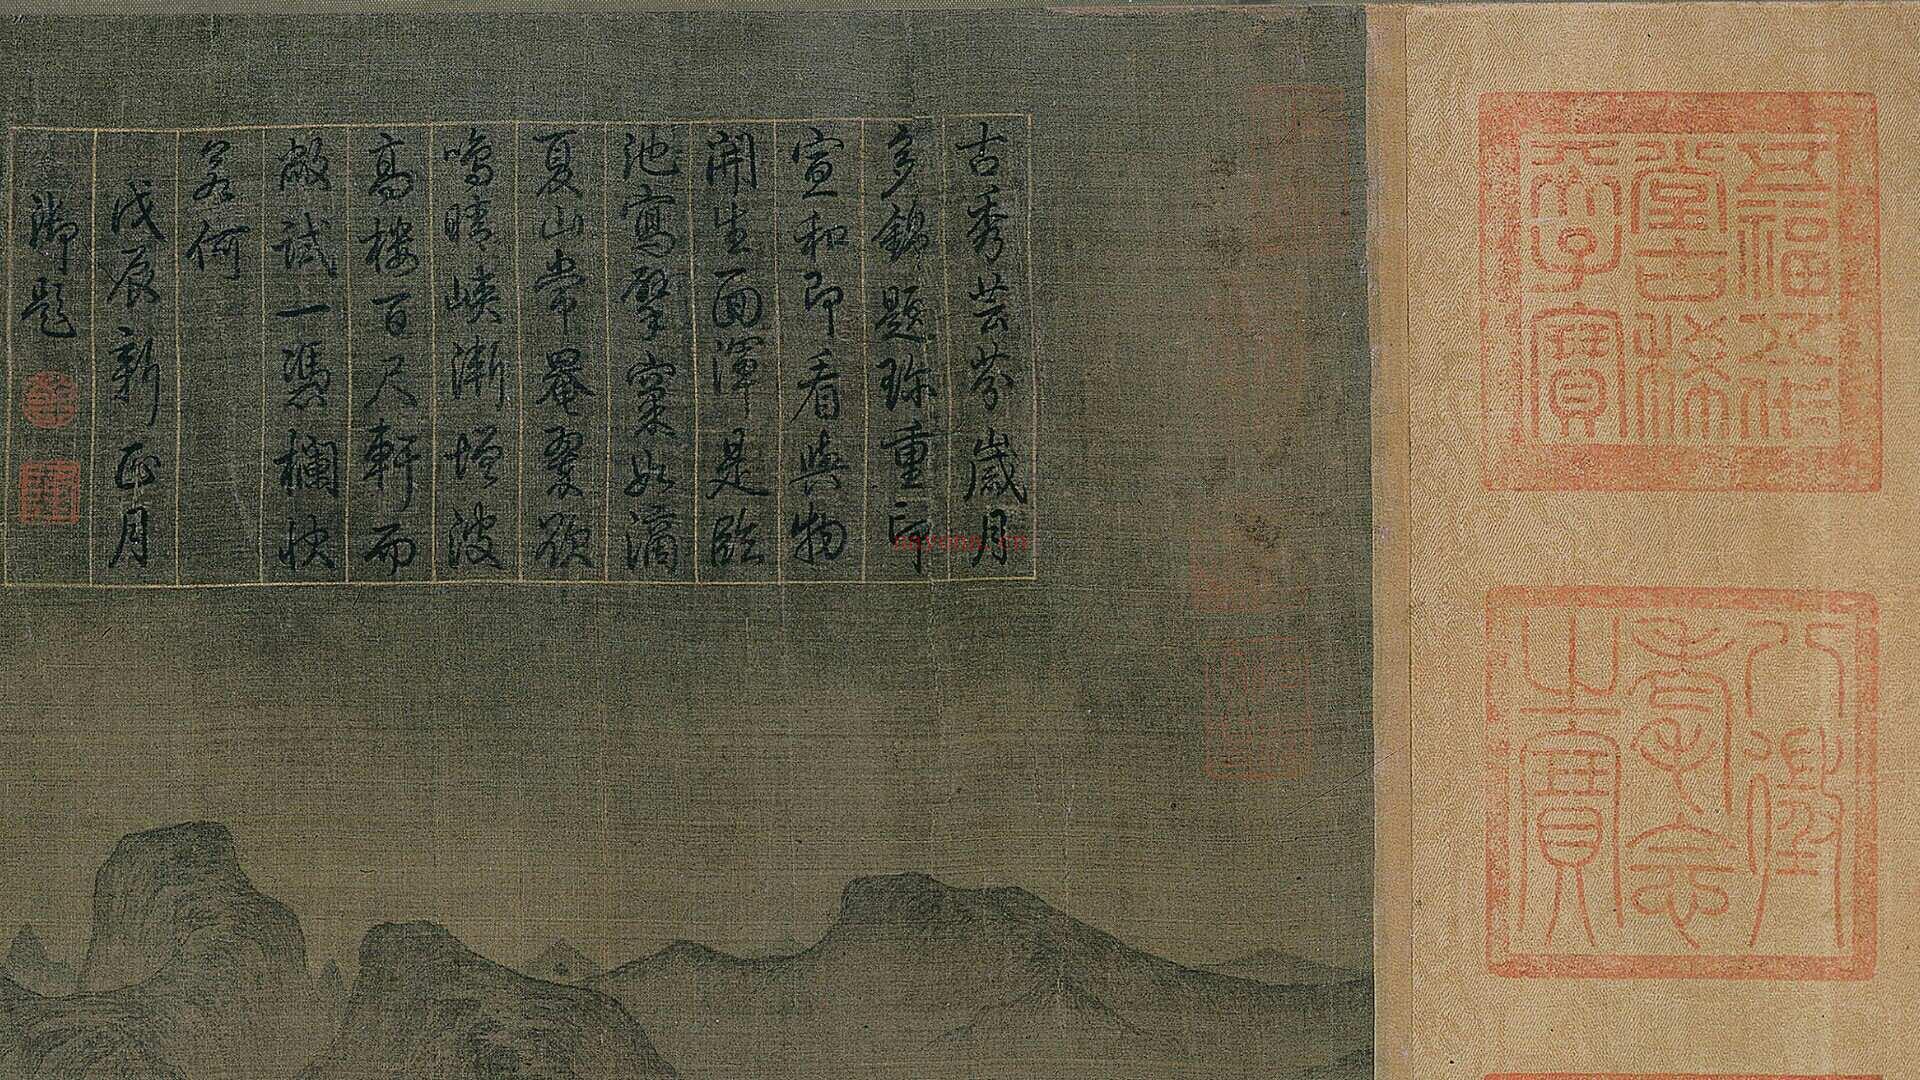 古秀芸芬歲月
多錦題珎重印
宣和即看與物
開生面渾是臨
池寫擘窠如滴
夏山常罨翠欲
鳴晴峽漸增波
髙樓百尺軒而
敞試一憑欄快
若何
戊辰新正月
御題
乾
隆
五福五代
堂古稀
天子寶
八徵
耄念
之寶